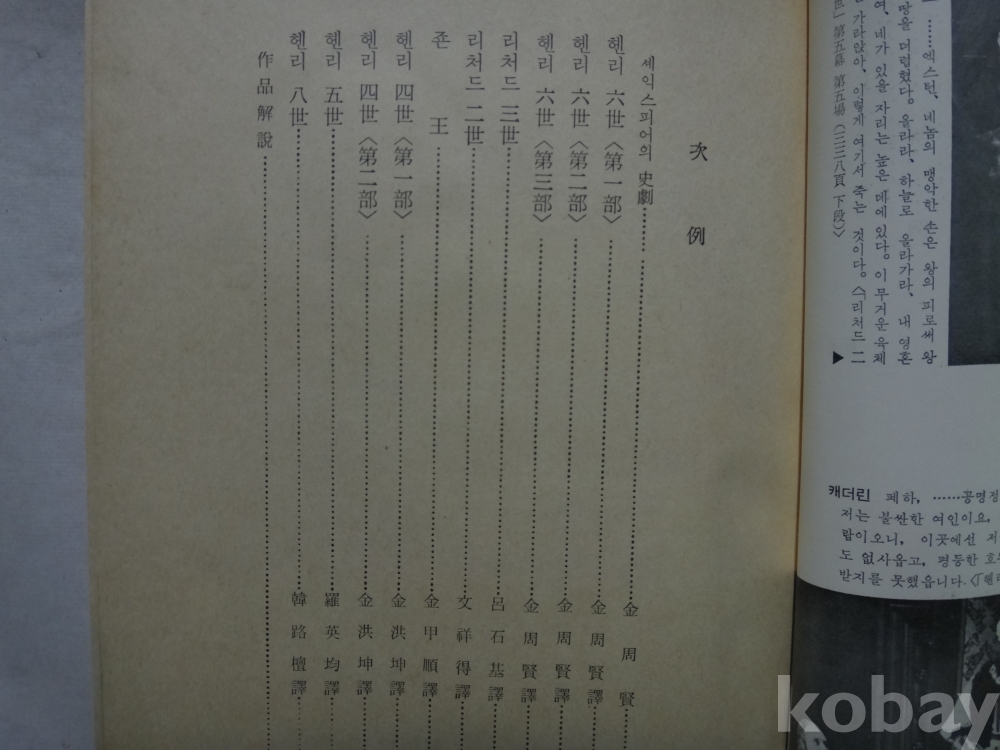 …… 엑스턴, 네놈의 맹악한 손은 왕의 피로써 왕
땅을 더렵혔다. 올라라, 하늘로 올라가라, 내 영혼
여, 네가 있을 자리는 높은 데에 있다. 이 무거운 육체
가라앉아, 이렇게 여기서 죽는 것이다.〈「리처드 二
世」第五幕 第五場(三三八頁 下段)〉
▶
캐더린 폐하, ……공명정
저는 불싼한 여인이요,
람이오니, 이곳에선 저
도 없사옵고, 평등한 호
받지를 못했읍니다.〈「헨리
次例
셰익스피어의 史劇 金周賢
헨리 六世〈第一部〉 金周賢譯
헨리 六世〈第二部〉 金周賢譯
헨리 六世〈第三部〉 金周賢譯
리처드 三世 呂石基譯
리처드 二世 文祥得譯
죤 王 金甲順譯
헨리 四世〈第一部〉 金洪坤譯
헨리 四世〈第二部〉 金洪坤譯
헨리 五世 羅英均譯
헨리 八世 韓路檀譯
作品解說
kobay